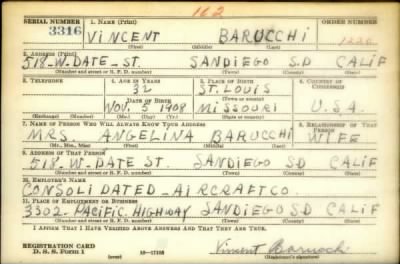 162
SERIAL NUMBER 1. NAME (Print) ORDER NUMBER
3316 VINCENT BARUCCHI 1220
(First) (Middle) (Last)
2. ADDRESS (Print)
518-W-DATE-ST. SANDIEGO S.D CALIF
(Number and street or R. F. D. number) (Town) (County) (State)
3. TELEPHONE 4. AGE IN YEARS 5. PLACE OF BIRTH 6. COUNTRY OF CITIZENSHIP
32 ST. LOUIS
DATE OF BIRTH (Town or county)
NOV. 5 1908 MISSOURI U.S.A.
(Exchange) (Number) (Mo.) (Day) (Yr.) (State or country)
7. NAME OF PERSON WHO WILL ALWAYS KNOW YOUR ADDRESS 8. RELATIONSHIP OF THAT PERSON
MRS. ANGELINA BARUCCHI WIFE
(Mr., Mrs., Miss) (First) (Middle) (Last)
9. ADDRESS OF THAT PERSON
518-W-DATE ST. SANDIEGO SD CALIF
(Number and street or R. F. D. number) (Town) (County) (State)
10. EMPLOYER'S NAME
CONSOLIDATED-AIRCRAFT CO.
11. PLACE OF EMPLOYMENT OR BUSINESS
3302- PACIFIC HIGHWAY SANDIEGO SD CALIF
(Number and street or R. F. D. number) (Town) (County) (State)
I AFFIRM THAT I HAVE VERIFIED ABOVE ANSWERS AND THAT THEY ARE TRUE.
REGISTRATION CARD
D. S. S. Form 1 16-17105 Vincent Barucchi
(Registrant's signature)